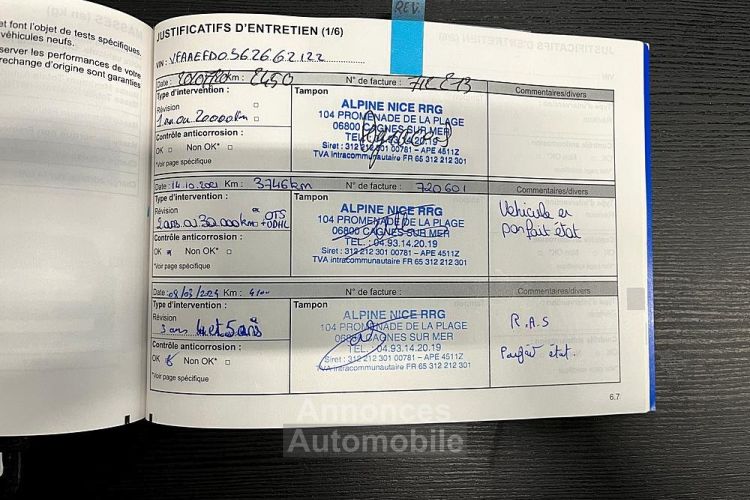 REV
et font l'objet de tests spécifiques,
véhicules neufs.
server les performances de votre
rechange d'origine sont garanties
JUSTIFICATIFS D'ENTRETIEN (1/6)
VIN : VFAAEFD0.56.26.62.122
Date : Km : 2450 N° de facture :
Type d'intervention :
Révision
1 an ou 20000km
Contrôle anticorrosion :
OK Non OK*
*Voir page spécifique
Tampon
ALPINE NICE RRG
104 PROMENADE DE LA PLAGE
06800 CAGNES SUR MER
04.93.14.20.19
Siret : 312 212 301 00781 – APE 4511Z
TVA intracommunautaire FR 65 312 212 301
Commentaires/divers
Date : 14.10.2021 Km : 3746km N° de facture : 720601
Type d'intervention :
Révision
2 ans ou 30.000km + OTS
ODHL
Contrôle anticorrosion :
OK Non OK*
*Voir page spécifique
Tampon
ALPINE NICE RRG
104 PROMENADE DE LA PLAGE
06800 CAGNES SUR MER
TEL. : 04.93.14.20.19
Siret : 312 212 301 00781 – APE 4511Z
TVA intracommunautaire FR 65 312 212 301
Commentaires/divers
Véhicule en
parfait état
Date : Km : N° de facture :
Type d'intervention :
Révision
3 ans 4 et 5 ans
Contrôle anticorrosion :
OK Non OK*
*Voir page spécifique
Tampon
ALPINE NICE RRG
104 PROMENADE DE LA PLAGE
06800 CAGNES SUR MER
TEL. : 04.93.14.20.19
Siret : 312 212 301 00781 – APE 4511Z
TVA intracommunautaire FR 65 312 212 301
Commentaires/divers
R.A.S
Parfait état.
6.7
Annonces
Automobile